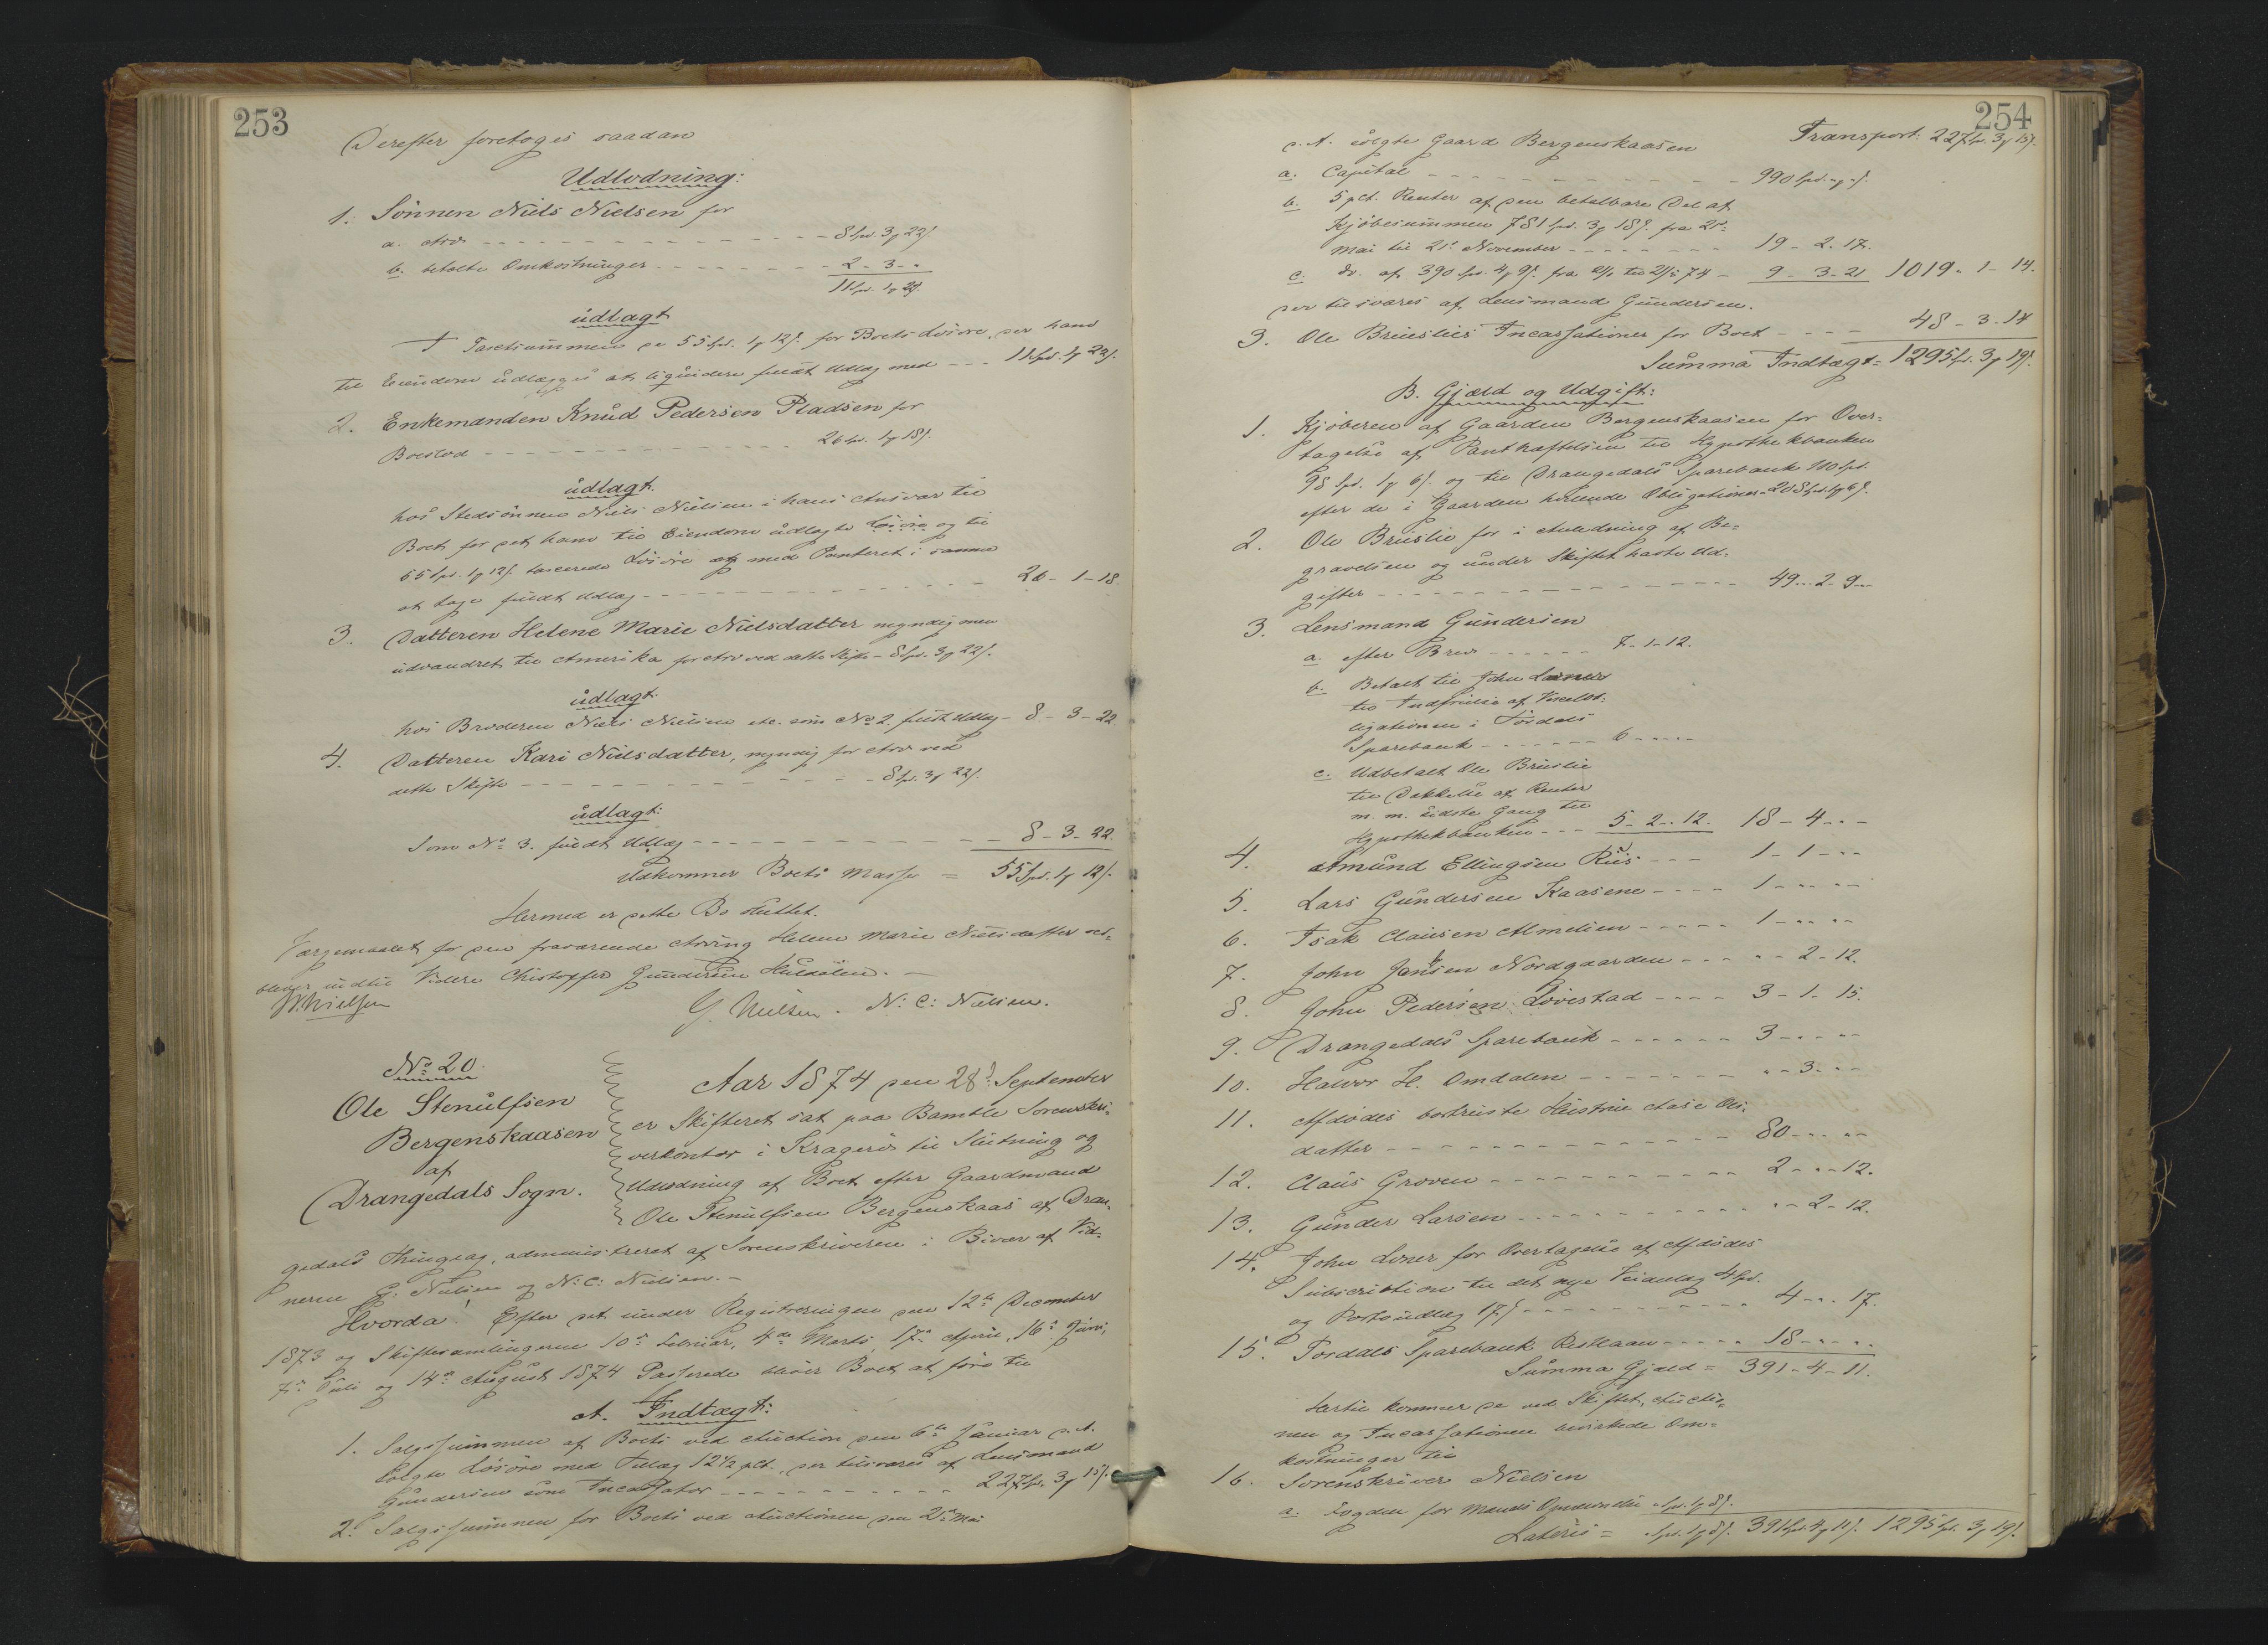 253
Derefter foretoges saadan
Udlodning:
1. Sønnen Niels Nielsen for
a. Arv - - - 8 Spd. 3 ƒ 22 ƒ.
b. betalte Omkostninger - - - 2 - 3 - "
11 Spd. 1 ƒ 22 ƒ.
udlagt
I Taxtsummen de 55 Spd. 1 ƒ 12 ƒ. for Boets Løsøre, der ham
til Eiendom udlægges at liquidere fuldt Udlæg med - - - 11 Spd. 1 ƒ 22 ƒ.
2. Enkemanden Knud Pedersen Pladsen for
Boeslod - - - 26 Spd. 1 ƒ 18 ƒ.
udlagt.
hos Stedsønnen Niels Nielsen i hans Ansvar til
Boet for det ham til Eiendom udlagte Løsøre og til
55 Spd. 1 ƒ 12 ƒ. taxerede Løsøre og med Panteret i samme
at tage fuldt Udlæg - - - 26 - 1 - 18
3. Datteren Helene Marie Nielsdatter myndig men
udvandret til Amerika for Arv ved dette Skifte - 8 Spd. 3 ƒ 22 ƒ.
udlagt.
hos Broderen Niels Nielsen etc. som No 2. fuldt Udlæg - 8 - 3 - 22
4. Datteren Kari Nielsdatter, myndig for Arv ved
dette Skifte - - - 8 Spd. 3 ƒ 22 ƒ.
udlagt:
Som No 3. fuldt Udlæg - - - 8 - 3 - 22
Udkommer Boets Masse = 55 Spd. 1 ƒ 12 ƒ.
Hermed er dette Bo sluttet.
Værgemaalet for den fraværende Arving Helene Marie Nielsdatter ved-
bliver indtil Videre Christopher Gundersen
Nielsen G. Nielsen. N: C: Nielsen.
No 20.
Ole Stenulfsen
Bergenskaasen
af
Drangedals Sogn.
Aar 1874 den 28de September
er Skifteret sat paa Bamble Sorenskri-
verkontor i Kragerø til Slutning og
Udlodning af Boet efter Gaardmand
Ole Stenulfsen Bergenskaas af Dran-
gedals Thinglag, administreret af Sorenskriveren i Bivær af Vid-
nerne G: Nielsen og N: C: Nielsen. -
Hvorda! Efter det under Registreringen den 12te December
1873 og Skiftesamlingerne 10de Februar, 4de Marts, 17de April, 16de Juni,
7de Juli og 14de August 1874 Passerede bliver Boet at føre til
A. Indtægt:
1. Salgssummen af Boets ved Auction den 6te Januar d. A.
solgte Løsøre med Tillæg 12½ pCt., der tilsvares af Lensmand
Gundersen som Incassator - - - 227 Spd. 3 ƒ 15 ƒ.
2. Salgssummen for Boets ved Auctionen den 21de Mai
254
Transport: 227 Spd. 3 ƒ 15 ƒ.
d. A. solgte Gaard Bergenskaasen
a. Capital - - - 990 Spd. " ƒ " ƒ.
b. 5 pCt. Renter af den betalbare Del af
Kjøbesummen 781 Spd. 3 ƒ 18 ƒ. fra 21de
Mai til 21de November - - - 19 - 2 - 17.
c. do. af 390 Spd. 4 ƒ 9 ƒ. fra til 74 - 9 - 3 - 21 1019 - 1 - 14.
der tilsvares af Lensmand Gundersen.
3. Ole Brueslies Incassationer for Boet - - - 48 - 3 - 14
Summa Indtægt = 1295 Spd. 3 ƒ 19 ƒ.
B. Gjæld og Udgift:
1. Kjøberen af Gaarden Bergenskaasen for Over-
tagelse af Panthæftelsen til Hypothekbanken
98 Spd. 1 ƒ 6 ƒ. og til Drangedals Sparebank 110 Spd.
efter de i Gaarden heftende Obligationer - 208 Spd. 1 ƒ 6 ƒ.
2. Ole Brueslie for i Anledning af Be-
gravelsen og under Skiftet havte Ud-
gifter - - - 49 - 2 - 9 -
3. Lensmand Gundersen
a. efter Brev - - - 7 - 1 - 12.
b. Betalt til John
til Indfrielse af
ligationen i Tørdals
Sparebank - - - 6 - " - "
c. Udbetalt Ole Brueslie
til Dækkelse af Renter
m. m. sidste Gang til
Hypothekbanken - - - 5 - 2 - 12. 18 - 4 - "
4. Amund Ellingsen Riis - - - 1 - 1 - "
5. Lars Gundersen Kaasene - - - 1 - " - "
6. Isak Clausen Almelien - - - 1 - " - "
7. John Jansen Nordgaarden - - - " - 2 - 12.
8. John Pedersen Lovestad - - - 3 - 1 - 15.
9. Drangedals Sparebank - - - 3 - " - "
10. Halvor H. Omdalen - - - " - 3 - "
11. Afdødes bortreiste Hustrue Aase Ols-
datter - - - 80 - " - "
12. Claus Groven - - - 2 - " - 12.
13. Gunder Larsen - - - " - 2 - 12.
14. John for Overtagelse af Afdødes
Subscription til det nye Veianlæg 4 Spd.
og Portoudlæg 17 ƒ - - - 4 - " - 17.
15. Tordals Sparebank Restlaan - - - 18 - " - "
Summa Gjæld = 391 - 4 - 11.
Hertil kommer de ved Skiftet, Auctio-
nen og Incassationen bevirkede Om-
kostninger til
16. Sorenskriver Nielsen
a. Fogden for Mands " Spd. 1 ƒ 8 ƒ.
Lateris = " Spd. 1 ƒ 8 ƒ. 391 Spd. 4 ƒ 11 ƒ. 1295 Spd. 3 ƒ 19 ƒ.